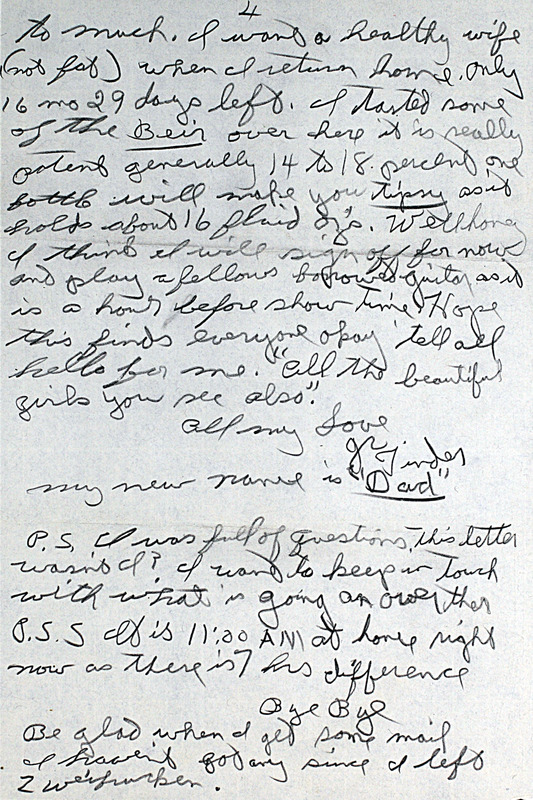 4
to much. I want a healthy wife
(not fat) when I return home. only
16 mo 29 days left. I tasted some
of the Beir over here it is really
potent generally 14 to 18 percent one
bottle will make you tipsy as it
holds about 16 fluid ozs. Well honey
I think I will sign off for now
and play a fellows borrowed guitar as it
is a hour before show time. Hope
this finds everyone okay tell all
hello for me. "all the beautiful
girls you see also."
All my Love
Jr
my new name is "Dad"
P.S. I was full of questions, this letter
wasn't I? I want to keep in touch
with what is going an over ther
P.S.S It is 11:00 AM at home right
now as there is 7 hrs difference
Bye Bye
Be glad when I get some mail
I havent got any since I left
Zweibrucken.